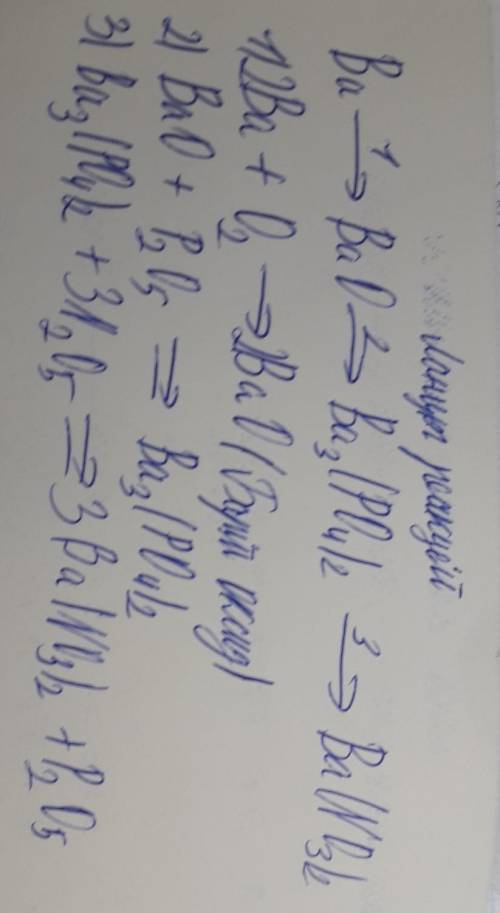 Ланцюг реакцій
Ba →1 BaO →2 Ba₃(PO₄)₂ →3 Ba(NO₃)₂
1) 2Ba + O₂ → 2BaO (Барій оксид)
2) BaO + P₂O₅ ⇒ Ba₃(PO₄)₂
3) Ba₃(PO₄)₂ + 3N₂O₅ ⇒ 3Ba(NO₃)₂ + P₂O₅